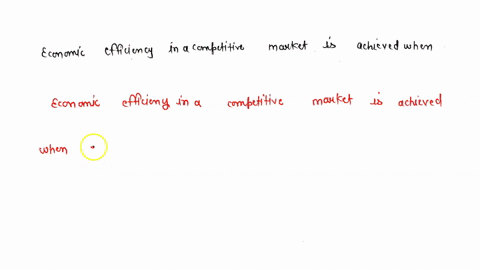 Economic efficiency in a competitive market is achieved when
Economic efficieny in a competitive market is achieved
when